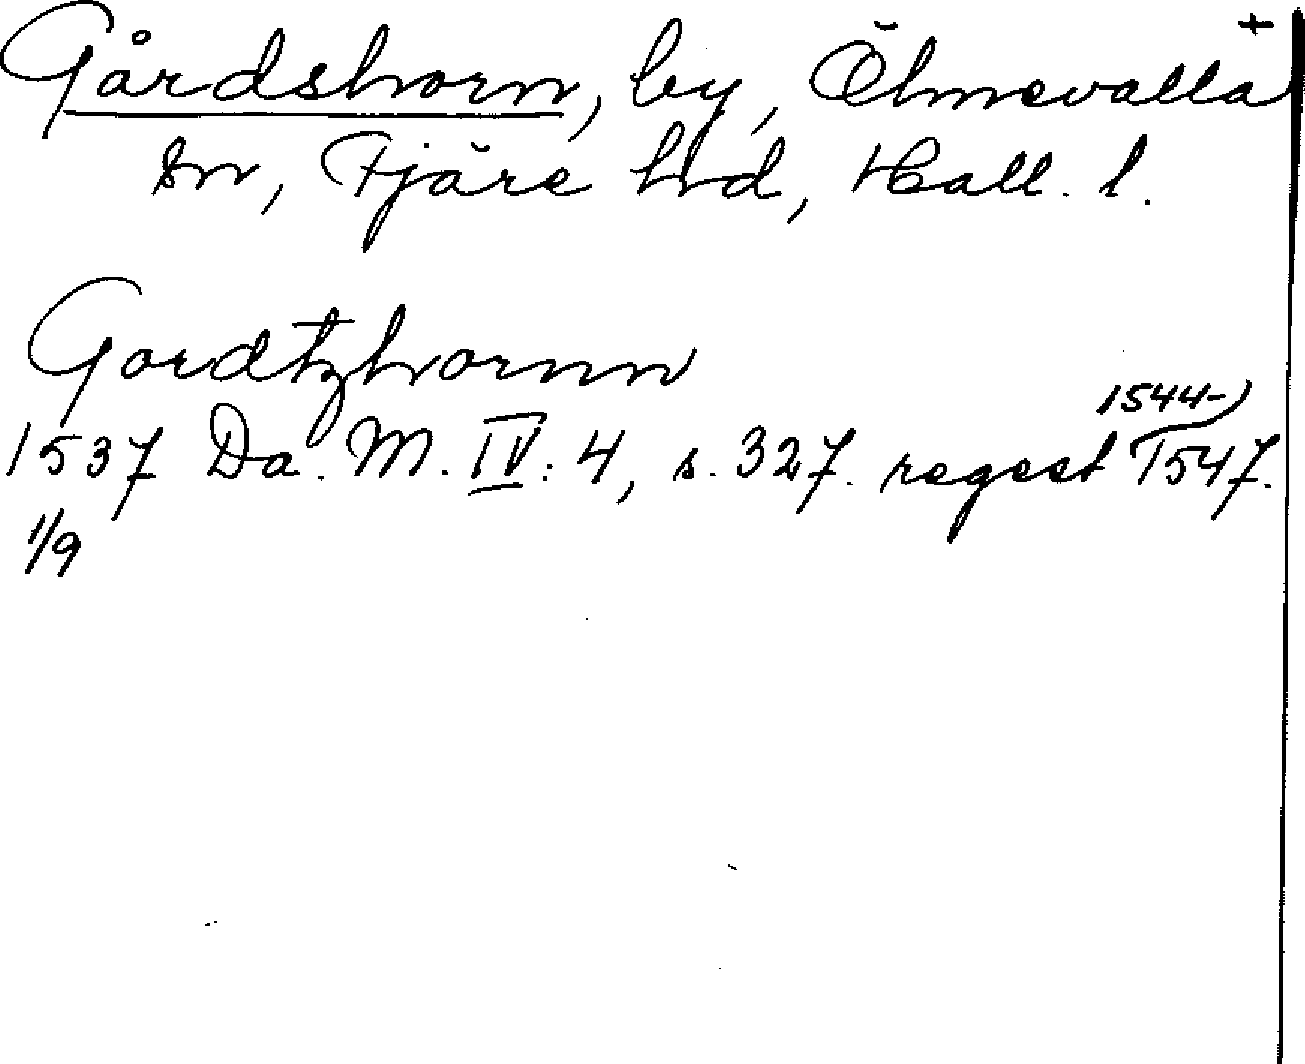 +
Gårdshorn, by, Ölmevalla
sn, Fjäre hd, Hall. l.
Gordtzhornn
1544-)
1537 Da. M. IV: 4, s. 327. regest 1547.
1/9